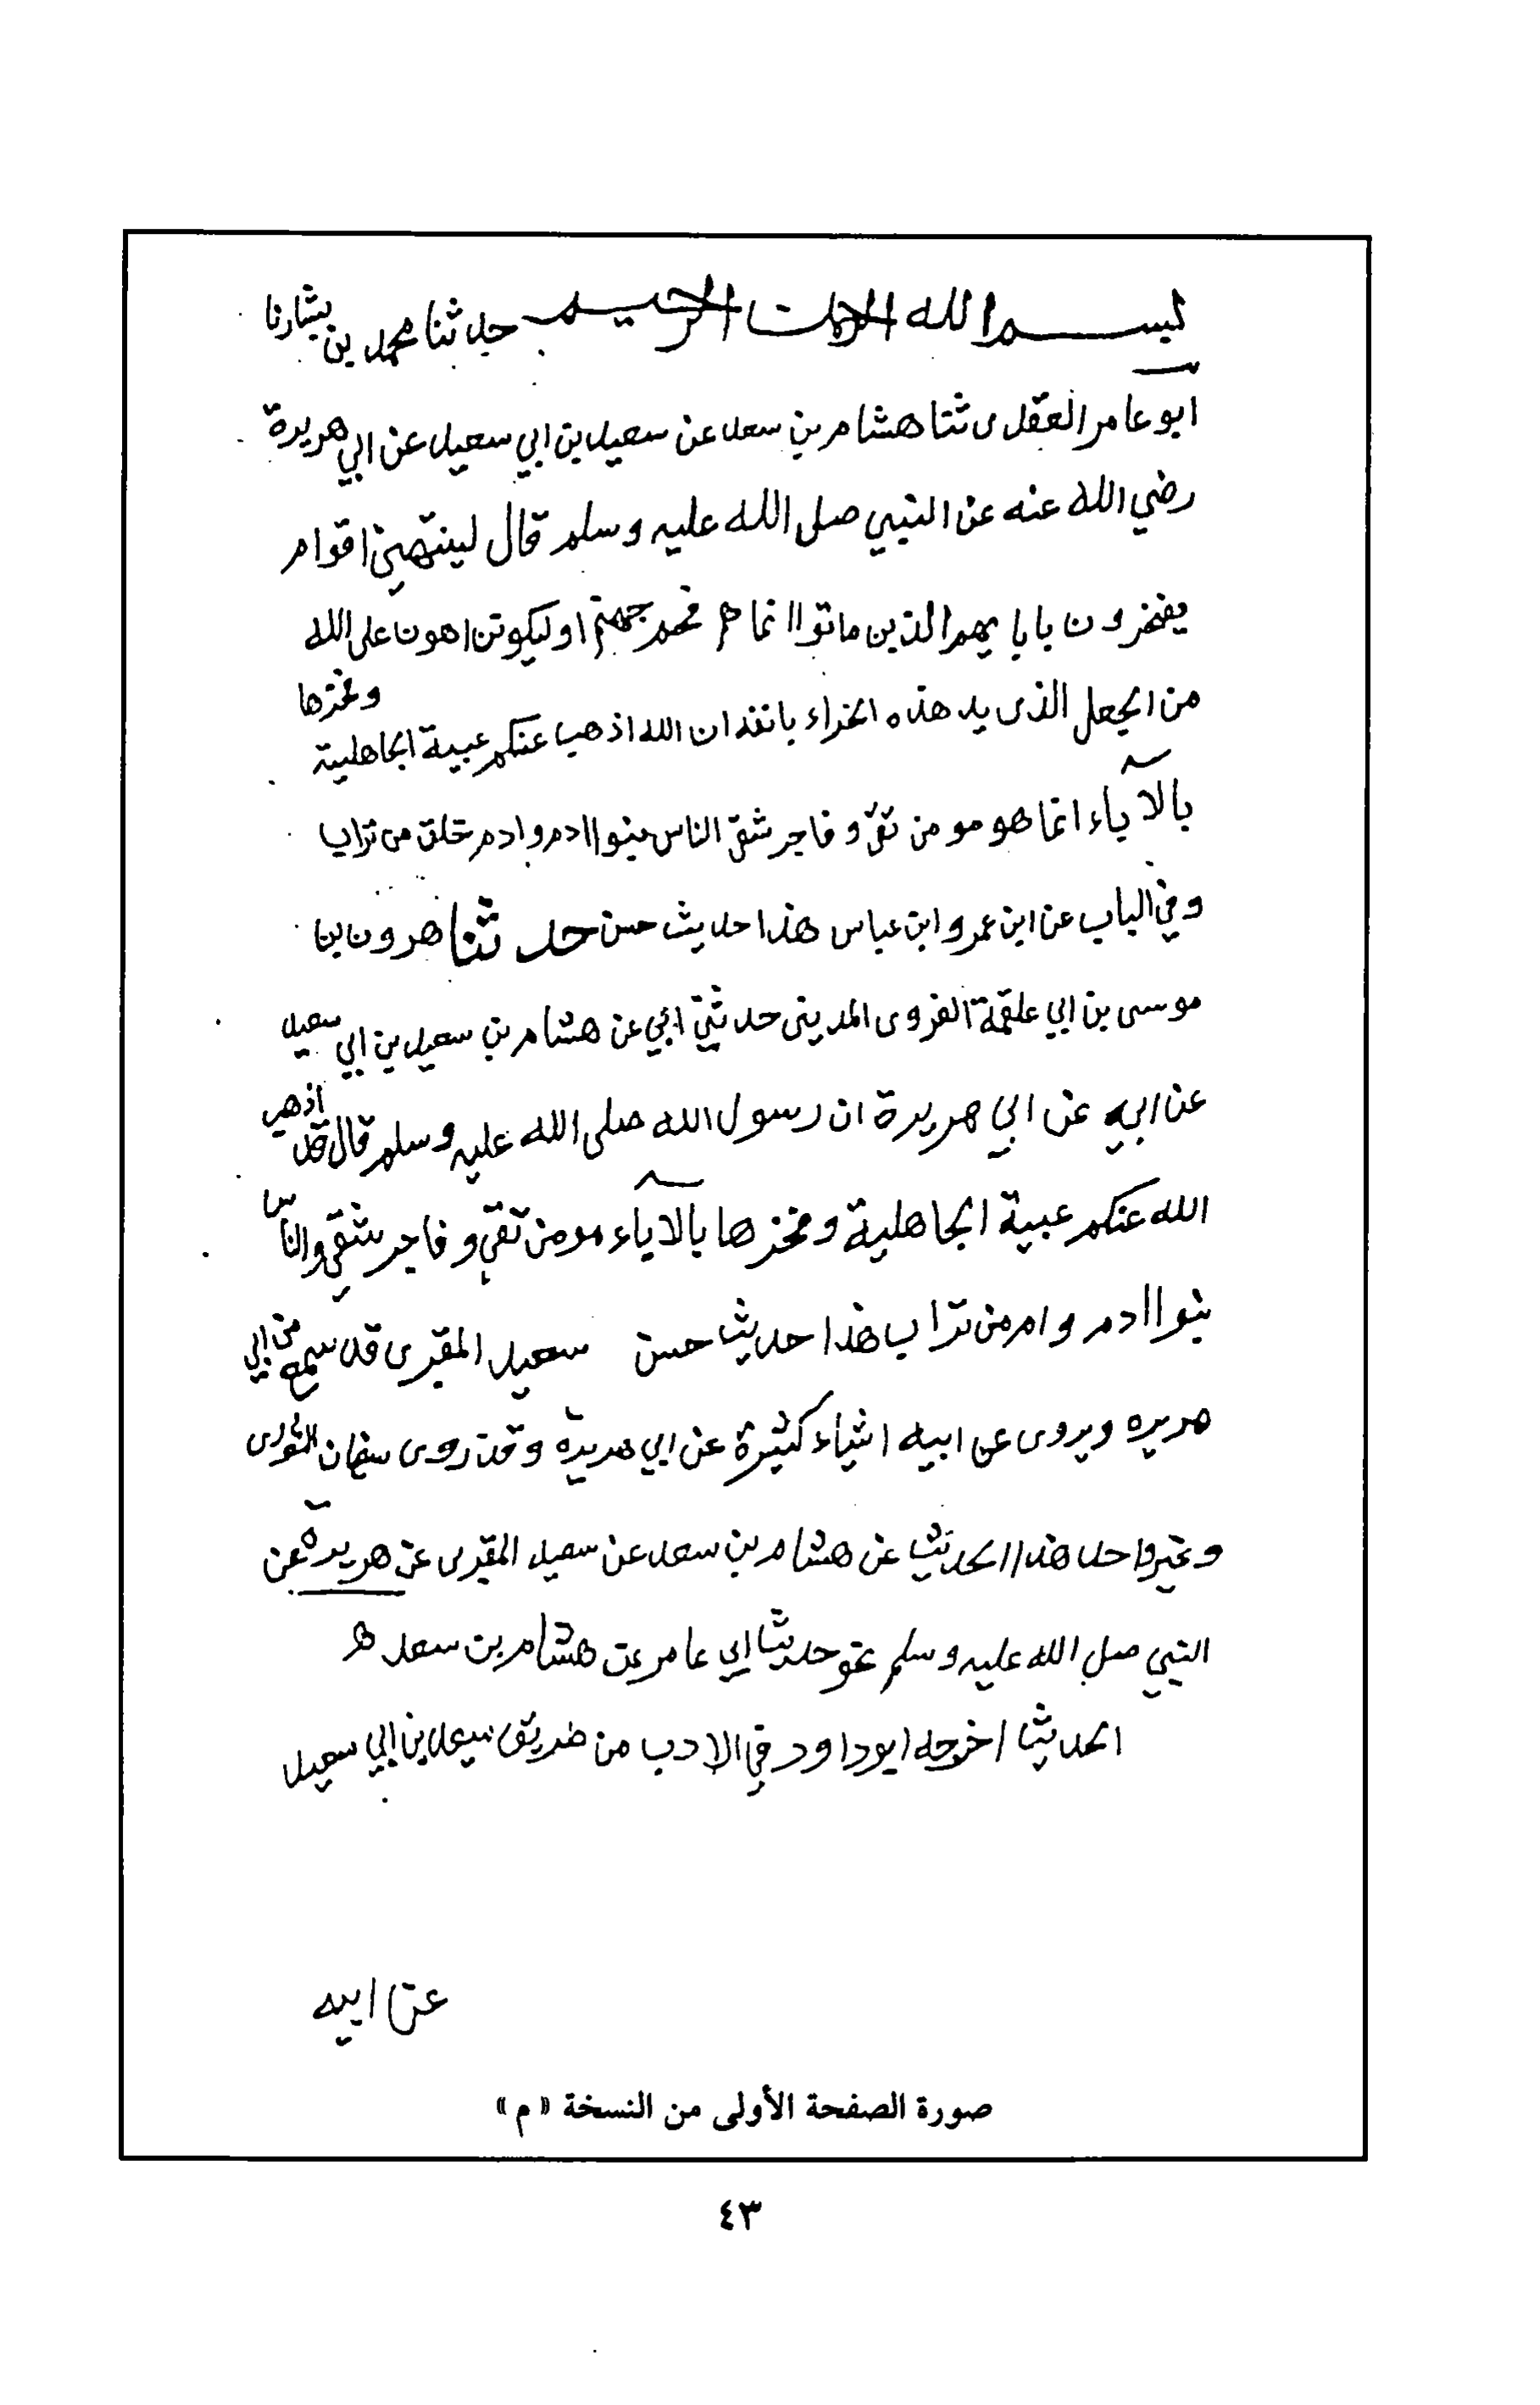 بسم الله الرحمن الرحيم حدثنا محمد بن بشار نا
ابو عامر العقدى ثنا هشام بن سعد عن سعيد بن ابي سعيد عن ابي هريرة
رضي الله عنه عن النبي صلى الله عليه وسلم قال لينتهين اقوام
يفتخرون بابايهم الذين ماتوا انما هم فحم جهنم او ليكونن اهون على الله
من الجعل الذى يدهده الخراء بانفه ان الله اذهب عنكم عبية الجاهلية وفخرها
بالآباء انما هو مومن تقي و فاجر شقي الناس بنوا ادم وادم خلق من تراب
وفي الباب عن ابن عمر وابن عباس هذا حديث حسن حدثنا هرون بن
موسى بن ابي علقمة الفروى المدينى حدثني ابي عن هشام بن سعيد بن ابي سعيد
عن ابيه عن ابي هريرة ان رسول الله صلى الله عليه وسلم قال قد اذهب
الله عنكم عبية الجاهلية وفخرها بالآباء مومن تقي و فاجر شقي والناس
بنوا ادم و ادم من تراب هذا حديث حسن سعيد المقبرى قد سمع من ابي
هريره ويروى عن ابيه اشياء كثيرة عن ابي هريرة وقد روى سفيان الثورى
وغير واحد هذا الحديث عن هشام بن سعد عن سعيد المقبرى عن هريرة عن
النبي صلى الله عليه وسلم نحو حديث ابي عامر عن هشام بن سعد
الحديث اخرجه ابو داود في الادب من طريق سعيد بن ابي سعيد
عن ابيه
صورة الصفحة الأولى من النسخة « م »
٤٣